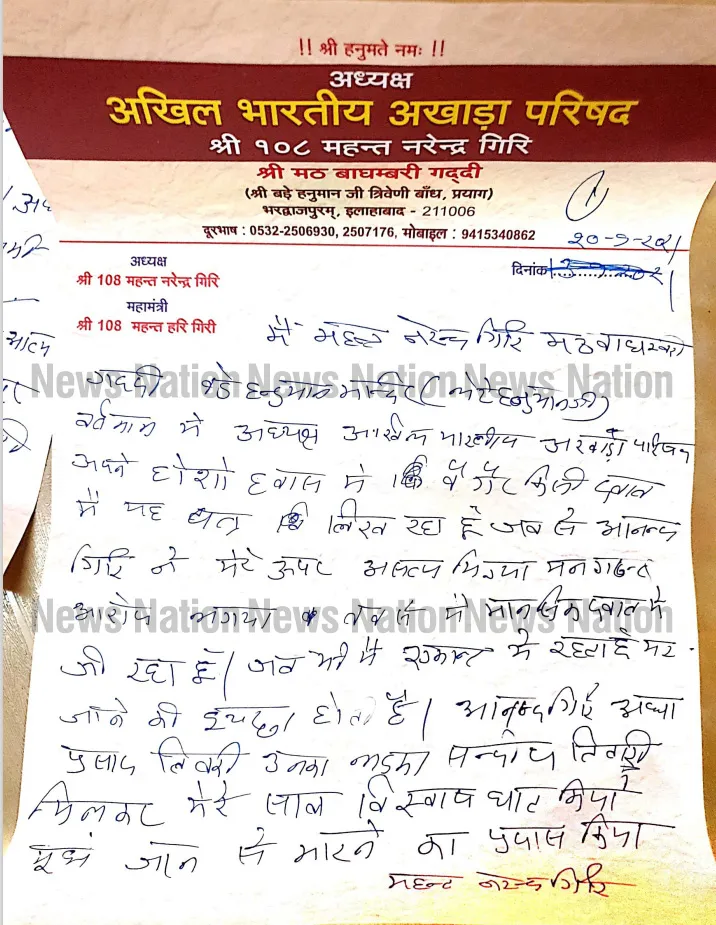 !! श्री हनुमते नमः !!
अध्यक्ष
अखिल भारतीय अखाड़ा परिषद
श्री १०८ महन्त नरेन्द्र गिरि
श्री मठ बाघम्बरी गद्दी
(श्री बड़े हनुमान जी त्रिवेणी बाँध, प्रयाग)
भरद्वाजपुरम्, इलाहाबाद - 211006
दूरभाष : 0532-2506930, 2507176, मोबाइल : 9415340862
अध्यक्ष
श्री 108 महन्त नरेन्द्र गिरि
महामंत्री
श्री 108 महन्त हरि गिरी
दिनांक
मैं महन्त नरेन्द्र गिरि मठ बाघम्बरी
गद्दी बड़े हनुमान मन्दिर (लेटे हनुमानजी)
वर्तमान मे अध्यक्ष अखिल भारतीय अखाड़ा परिषद
अपने होशो हवास मे बगैर किसी दबाव
में यह पत्र लिख रहा हूँ जब से आनन्द
गिरि ने मेरे ऊपर असत्य मिथ्या मनगढन्त
आरोप लगाया तब से मे मानसिक दबाव मे
जी रहा हूँ। जब भी मै एकान्त मे रहता हूँ मर
जाने की इच्छा होती है। आनन्द गिरि अध्या
प्रसाद तिवारी उनका लड़का सन्दीप तिवारी
मिलकर मेरे साथ विस्वासघात किया
मुझे जान से मारने का प्रयास किया
महन्त नरेन्द्र गिरि
News Nation News Nation News Nation
News Nation News Nation News Nation